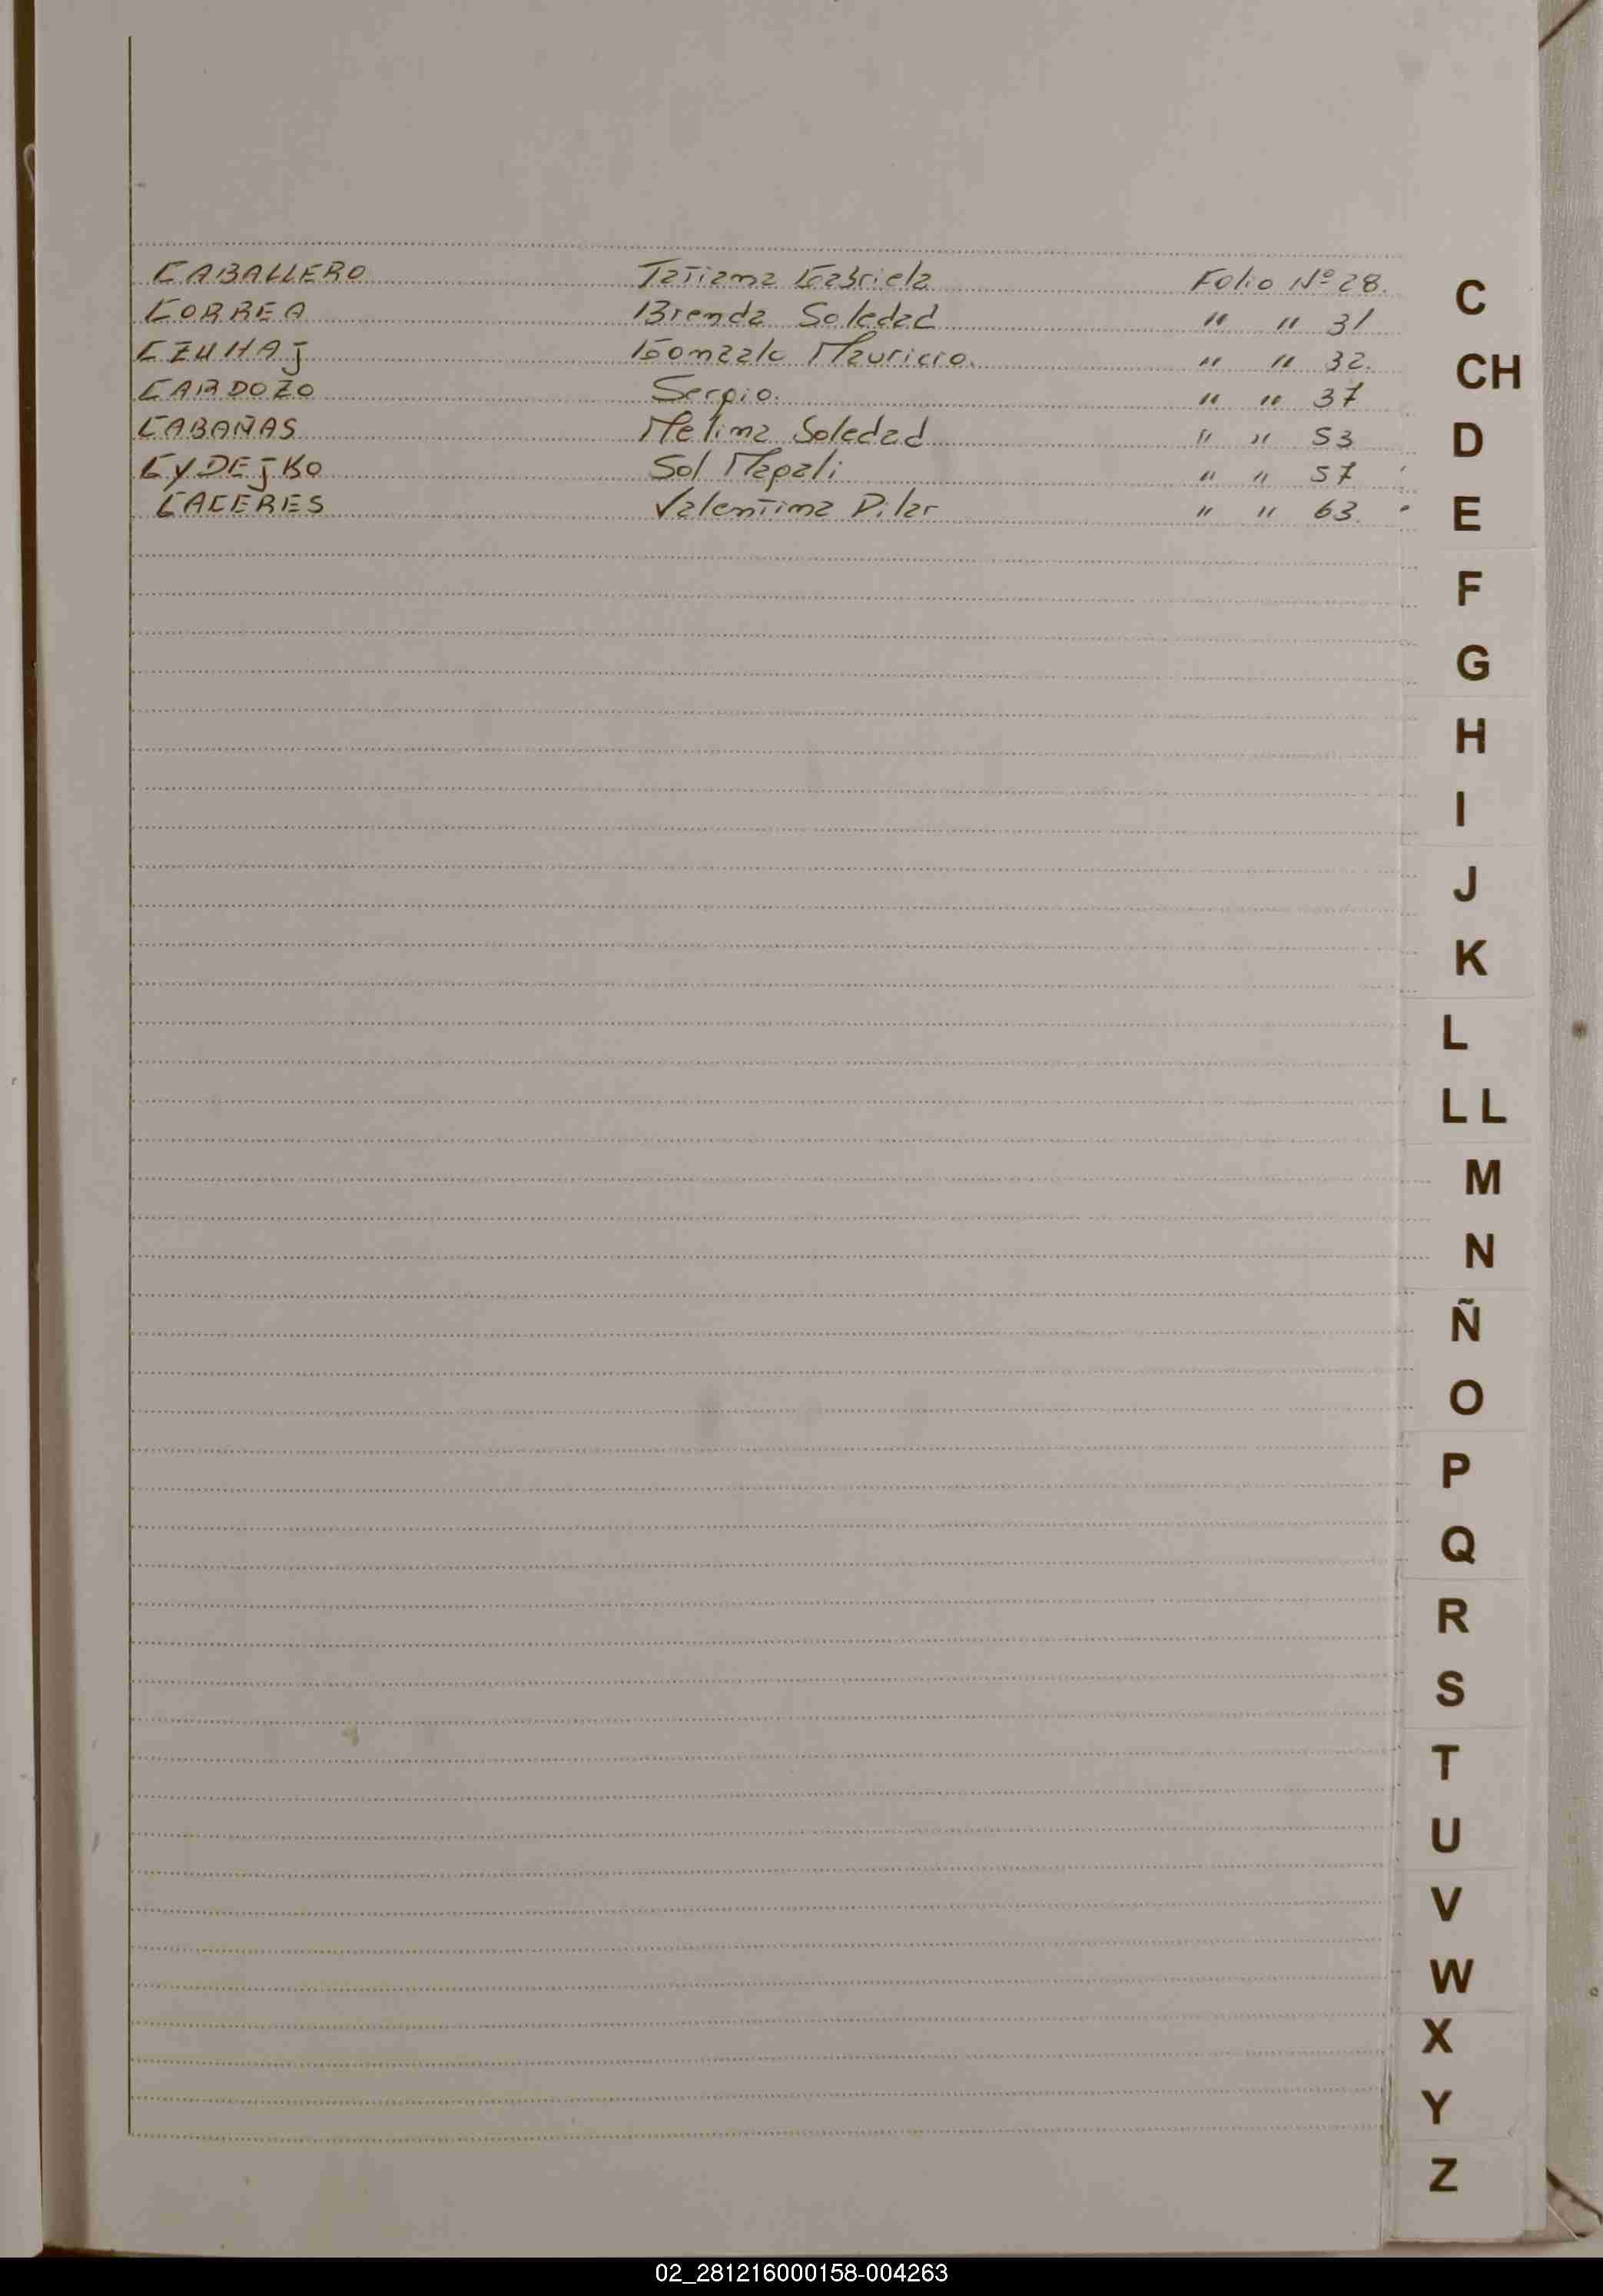 CABALLERO Tatiana Gabriela Folio Nº 28.
CORREA Brenda Soledad " " 31
CZUHAJ Gonzalo Mauricio. " " 32.
CARDOZO Sergio. " " 37
CABAÑAS Melina Soledad " " 53
CYDEJKO Sol Magali " " 57
CACERES Valentina Pilar " " 63.
C
CH
D
E
F
G
H
I
J
K
L
LL
M
N
Ñ
O
P
Q
R
S
T
U
V
W
X
Y
Z
02_281216000158-004263